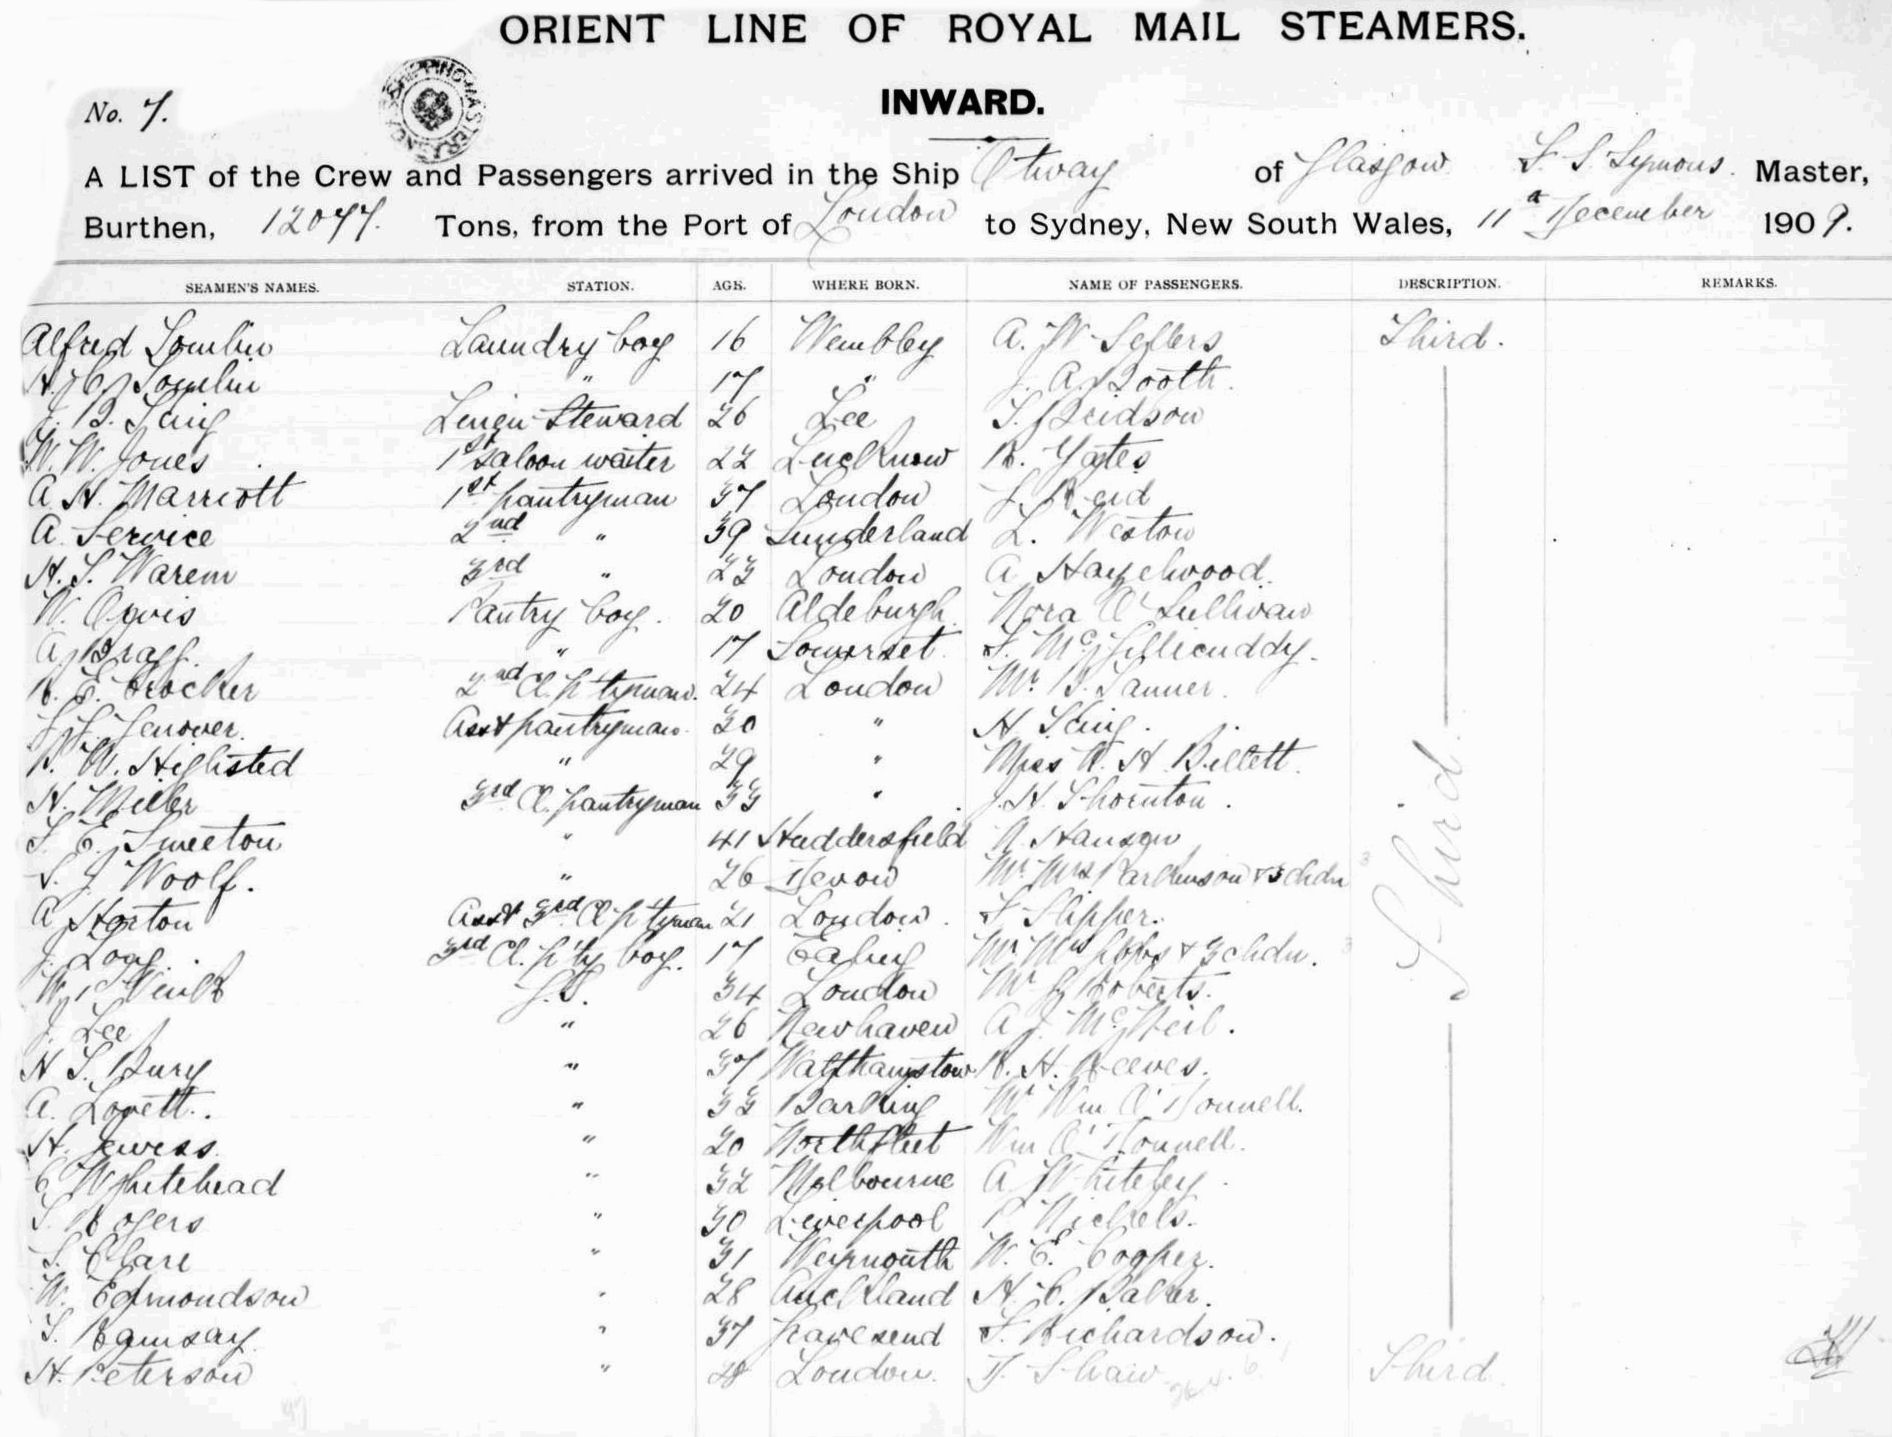 ORIENT LINE OF ROYAL MAIL STEAMERS.
No. 7.
INWARD.
A LIST of the Crew and Passengers arrived in the Ship Otway of Glasgow F. S. Symons. Master,
Burthen, 12077. Tons, from the Port of London to Sydney, New South Wales, 11th December 1909.
SEAMEN'S NAMES. STATION. AGE. WHERE BORN. NAME OF PASSENGERS. DESCRIPTION. REMARKS.
Alfred Tomlin Laundry boy 16 Wembley A. W. Sellers Third.
Tomlin " 17 " J. A. Booth.
J. B. Linen Steward 26 Lee
W. W. Jones 1st saloon waiter 22 Lucknow R. Yates
A. H. Marriott 1st pantryman 37 London J. Reid
A. Service 2nd " 39 Sunderland L. Weston
H. S. Warem 3rd " 23 London A Hazelwood.
W. Pantry boy. 20 Aldeburgh. Nora O'Sullivan
A. Bragg. " 17 Somerset. McGillicuddy.
R. E. Crocker 2nd Cl. p'tryman. 24 London Mr. Tanner.
Asst pantryman. 30 " H.
W. Highsted " 29 " Miss H. Billett.
H. Miller 3rd Cl. pantryman 33 " J. H. Thornton.
E. Smeeton " 41 Huddersfield Hanson
S. J. Woolf. " 26 Devon Mr. Mrs Parkinson & 3 chdn
A Horton Asst 3rd Cl p'tryman 21 London. Slipper.
J. Long. 3rd Cl. p'ty boy. 17 Ealing Mr. Mrs & 3 chdn.
W. G.S. 34 London Mr Roberts.
J. Lee " 26 Newhaven A. J. McNeil.
H S. Bury " 37 Walthamstow R. H. Reeves.
A. Lovett. " 33 Barking Mr Wm O'Donnell.
H. Jewiss. " 20 Northfleet Wm O'Donnell.
C Whitehead " 32 Melbourne A. Whiteley
Rogers " 30 Liverpool P. Nichels.
Clare " 31 Weymouth W. E. Cooper.
W. Edmondson " 28 Auckland H. C. Baker.
Ramsay " 37 Gravesend Richardson.
H. Peterson " 28 London. Shaw Third.
Third